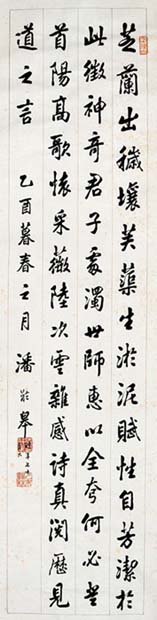 芝蘭出穢壤芙蕖生淤泥賦性自芳潔於
此徵神奇君子處濁世師惠以全夷何必登
首陽高歌懷采薇陸次雲雜感詩真閱歷見
道之言 乙酉暮春之月 潘齡皋